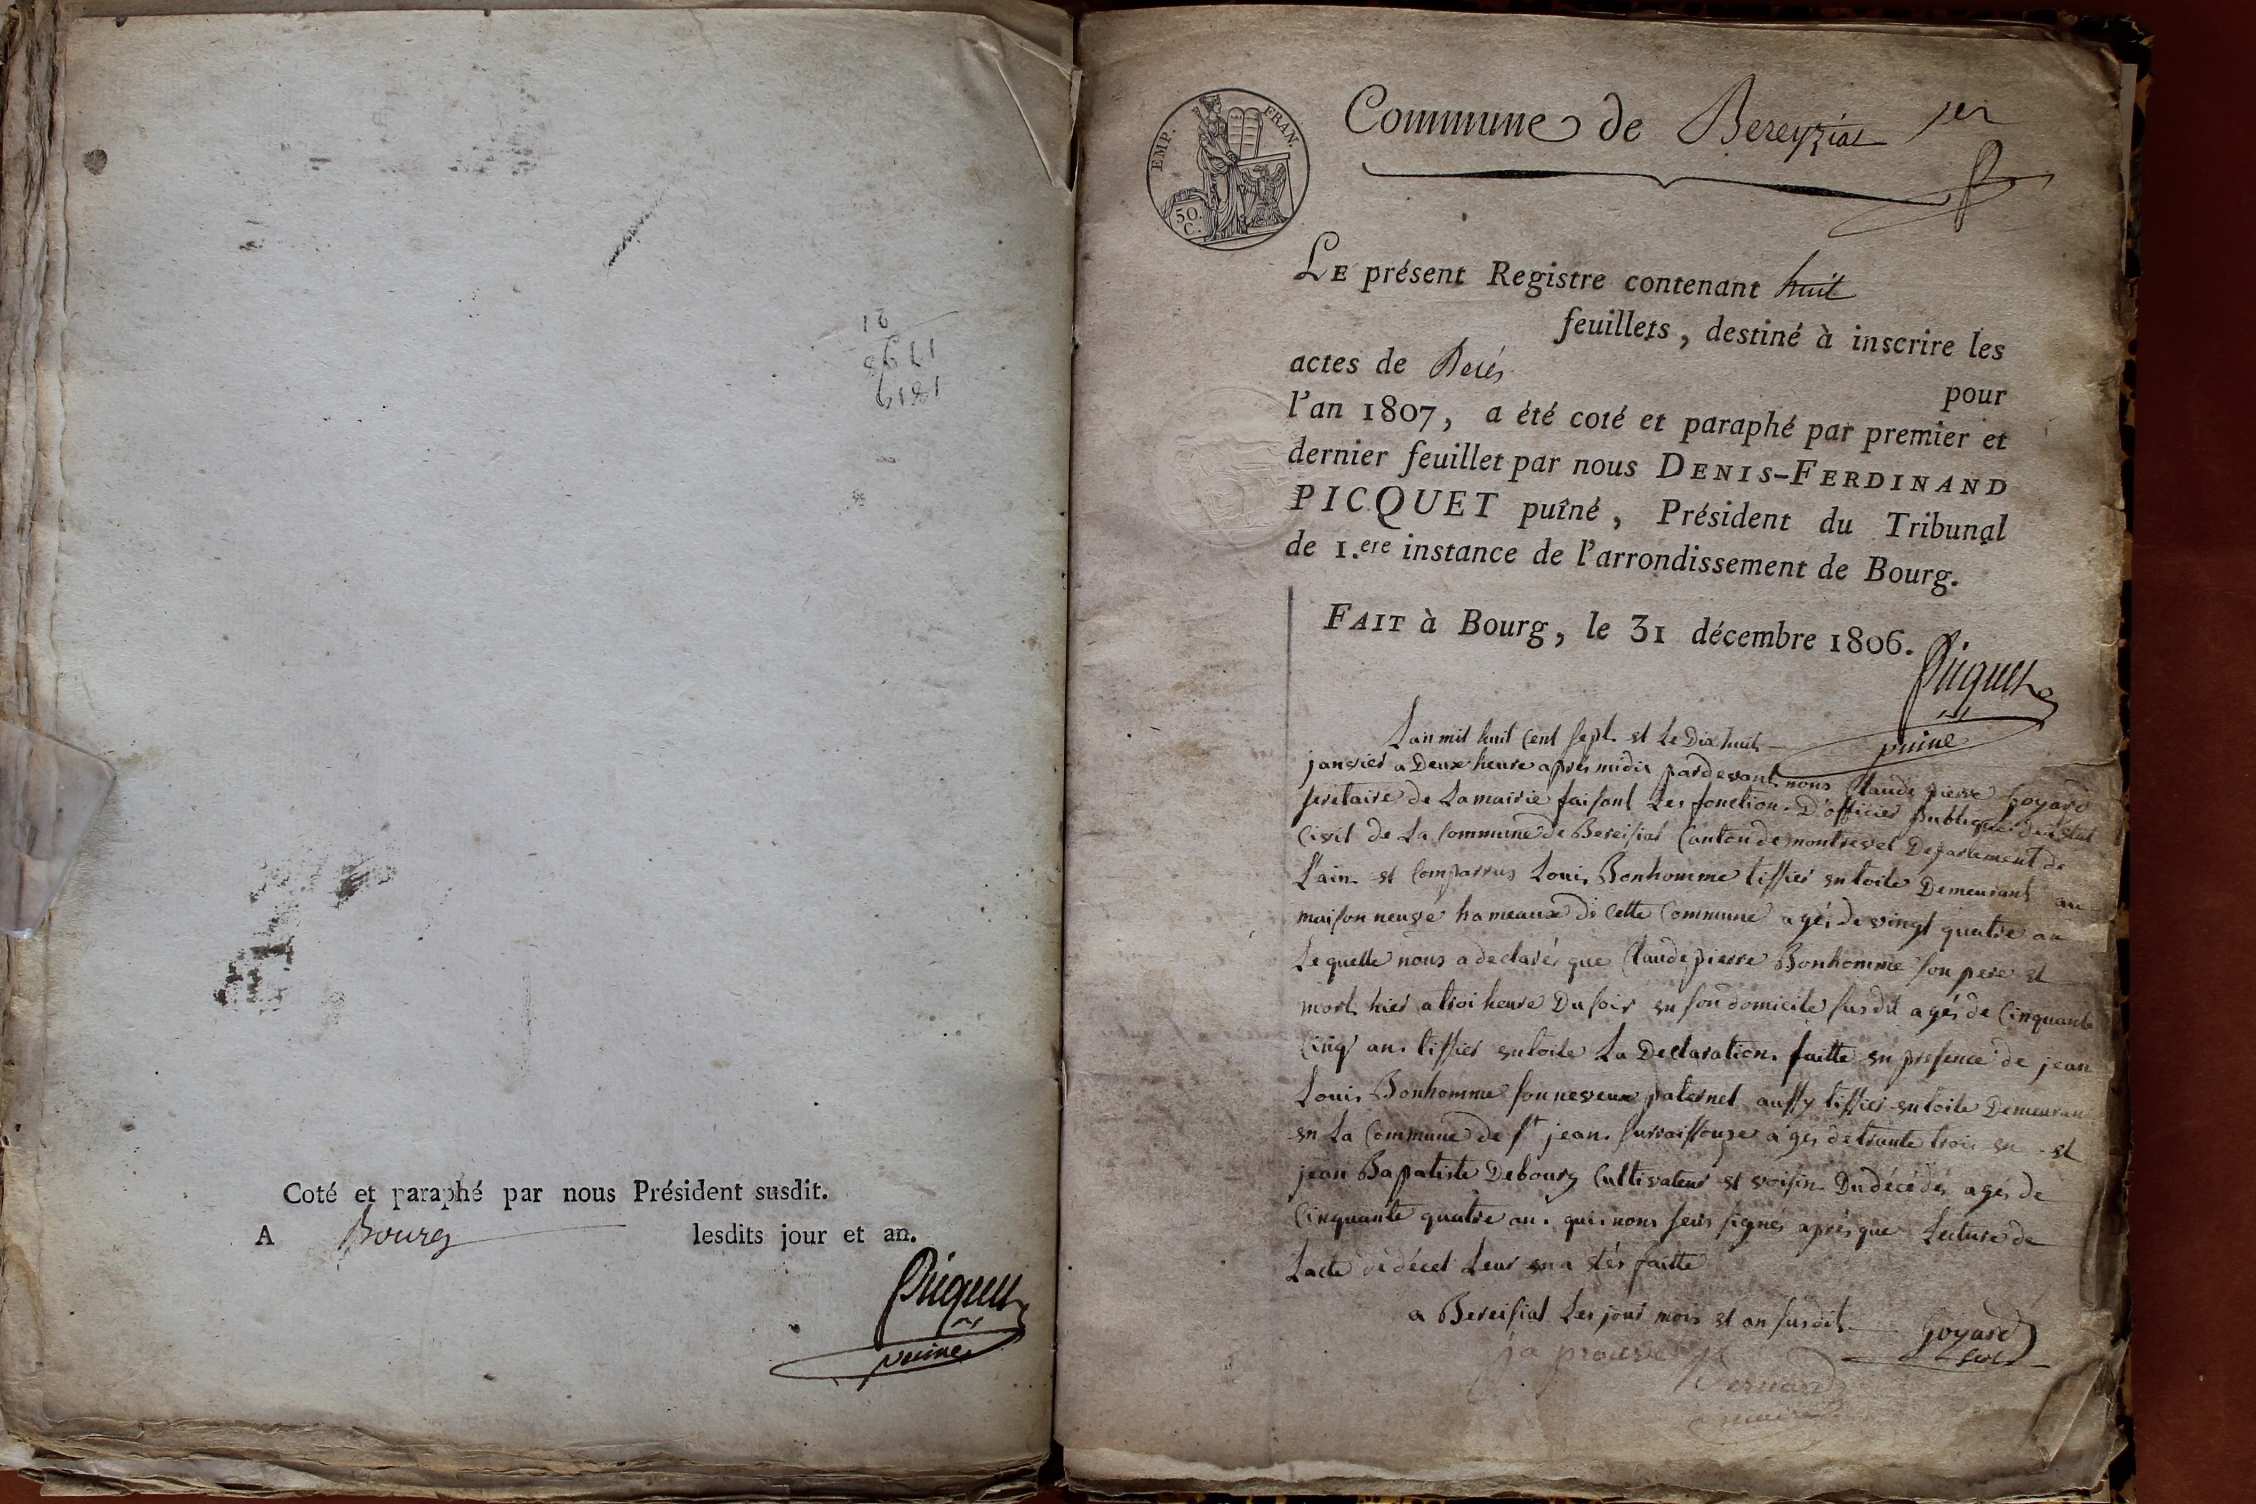 Coté et paraphé par nous Président susdit.
A Bourg lesdits jour et an.
Picquet
puiné
EMP. FRAN.
50. C.
Commune de Bereyziat 1er
LE présent Registre contenant huit
feuillets, destiné à inscrire les
actes de Décés pour
l'an 1807, a été coté et paraphé par premier et
dernier feuillet par nous DENIS-FERDINAND
PICQUET puîné, Président du Tribunal
de 1.ere instance de l'arrondissement de Bourg.
FAIT à Bourg, le 31 décembre 1806.
Picquet
puiné
Lan mil huit Cent sept et Le Dix huit
janvier a Deux heure aprés midis pardevant nous Claude pierre Goyard
secretaire de La mairie faisant Les fonction D'officier publique de Letat
Civil de La Commune de Bereisiat Canton de montrevel Departement de
L'ain et Comparrus Louis Bonhomme tissier en toile Demeurant au
maison neuve hameaux de Cette Commune agés de vingt quatre an
Le quelle nous a declarés que Claude pierre Bonhomme son pere et
mort hier a troi heure Du soir en son domicile susdit agés de Cinquante
Cinq an tissier en toile La Declaration faitte en presence de jean
Louis Bonhomme son neveux paternel aussy tissier en toile Demeuran
en La Commune de st jean surraissouze agés de trante trois en et
jean Bapatiste Debourg Cultivateur et voisin Du décédés agés de
Cinquante quatre an qui nous seus signés aprés que Lecture de
Lacte de décet Leur en a etés faitte
a Bereisiat Les jour mois et an susdit
Goyard
secre
ja prouve
Bernard
maire